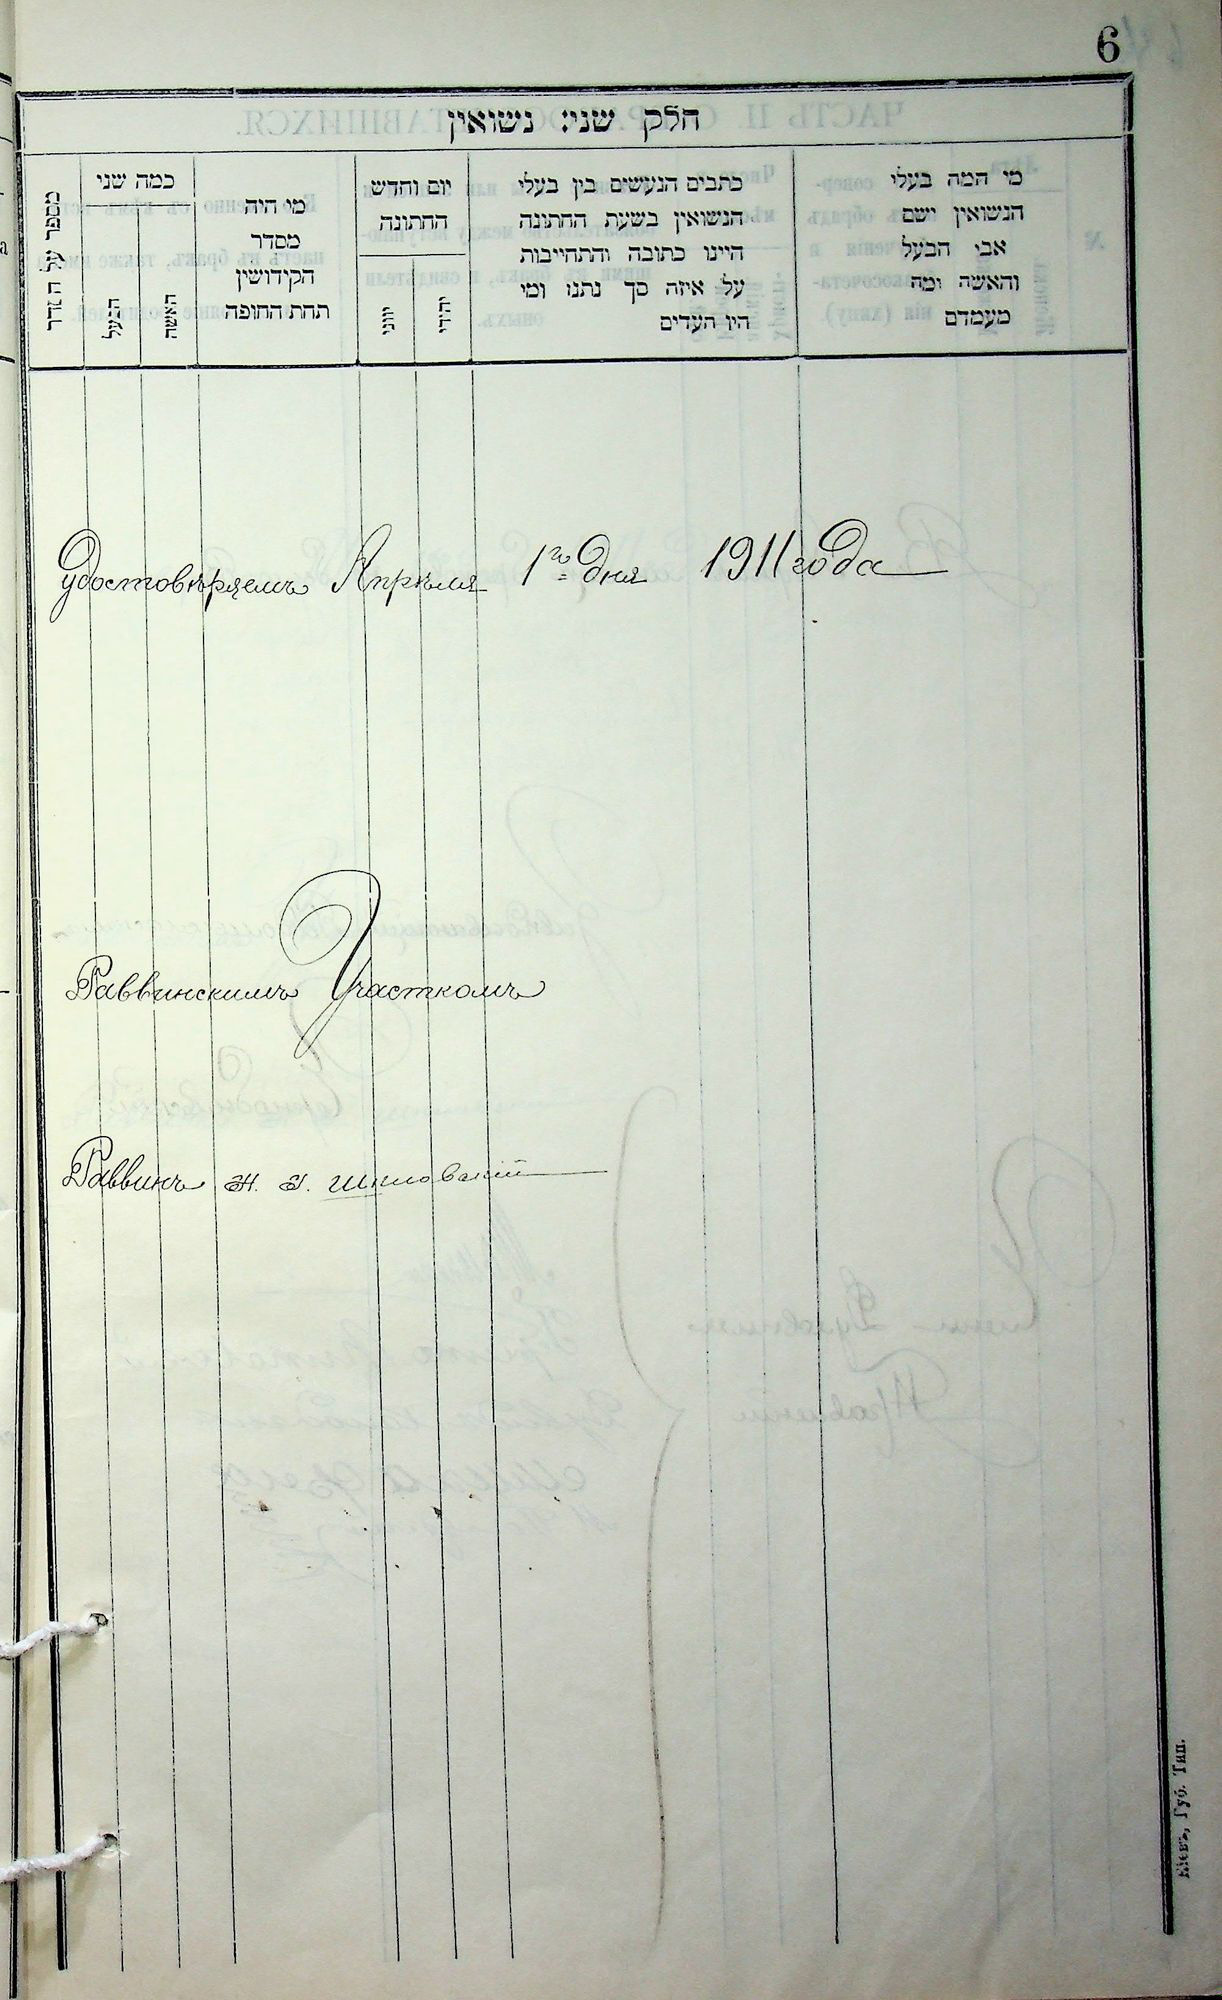 6
חלק שני: נשואין
מי המה בעלי
הנשואין ושם
אבי הבעל
והאשה ומה
מעמדם
כתבים הנעשים בין בעלי
הנשואין בשעת החתונה
היינו כתובה והתחייבות
על איזה סך נתנו ומי
היו העדים
יום וחדש
החתונה
יהודי
יווני
מי היה
מסדר
הקידושין
תחת החופה
כמה שני
האשה
הבעל
מספר על הסדר
удостовѣряемъ Апрѣля 1го дня 1911 года
Раввинскимъ Участкомъ
Раввинъ
Кіевъ, Губ. Тип.